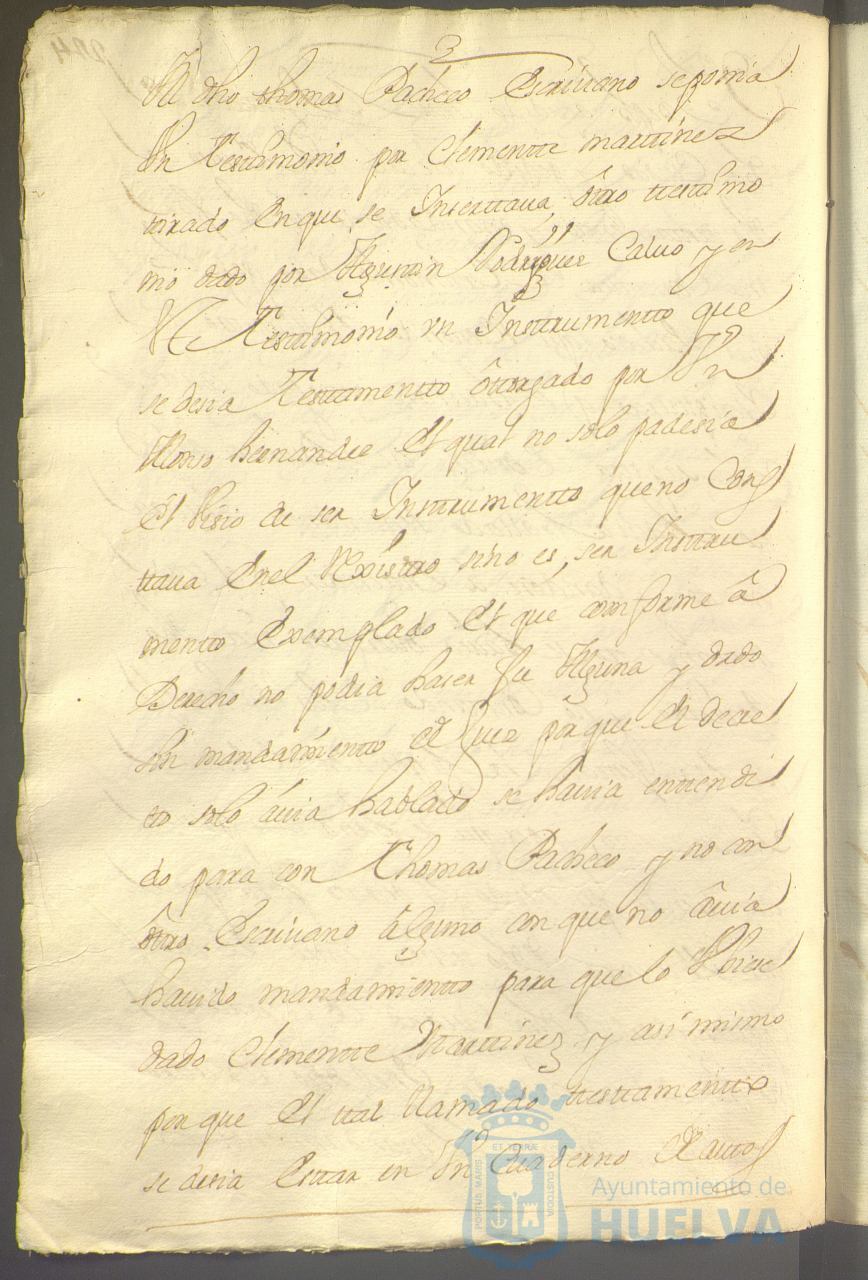 el dho thomas Pacheco Escriuano se ponia
Un Testtimonio por Clementte marttinez
tirado En que se Inserttaua otro testtimo
nio dado por Agustin Rodriguez Calvo y en
el Testtimonio vn Insttrumentto que
se desia Testtamentto ôttorgado por Vn
Alonso hernandez El qual no solo padesia
El Visio de ser Insttrumentto que no Cons
ttaua En el Rexisttro sino es, ser Insttru
mentto Exemplado El que comforme â
Derecho no podia haser fee Alguna y dado
sin mandamientto de Juez porque El decre
to solo âuia hablado se hauia entendi
do para con Thomas Pacheco y no con
ôttro Escriuano âlguno con que no âuia
hauido mandamientto para que lo Vbiese
dado Clementte Marttinez y asi mismo
por que El ttal llamado testtamentto
se desia Esttar en Vn Cuaderno De auttos
Ayuntamiento de
HUELVA
PORTUS MARIS
ET TERRÆ
CUSTODIA